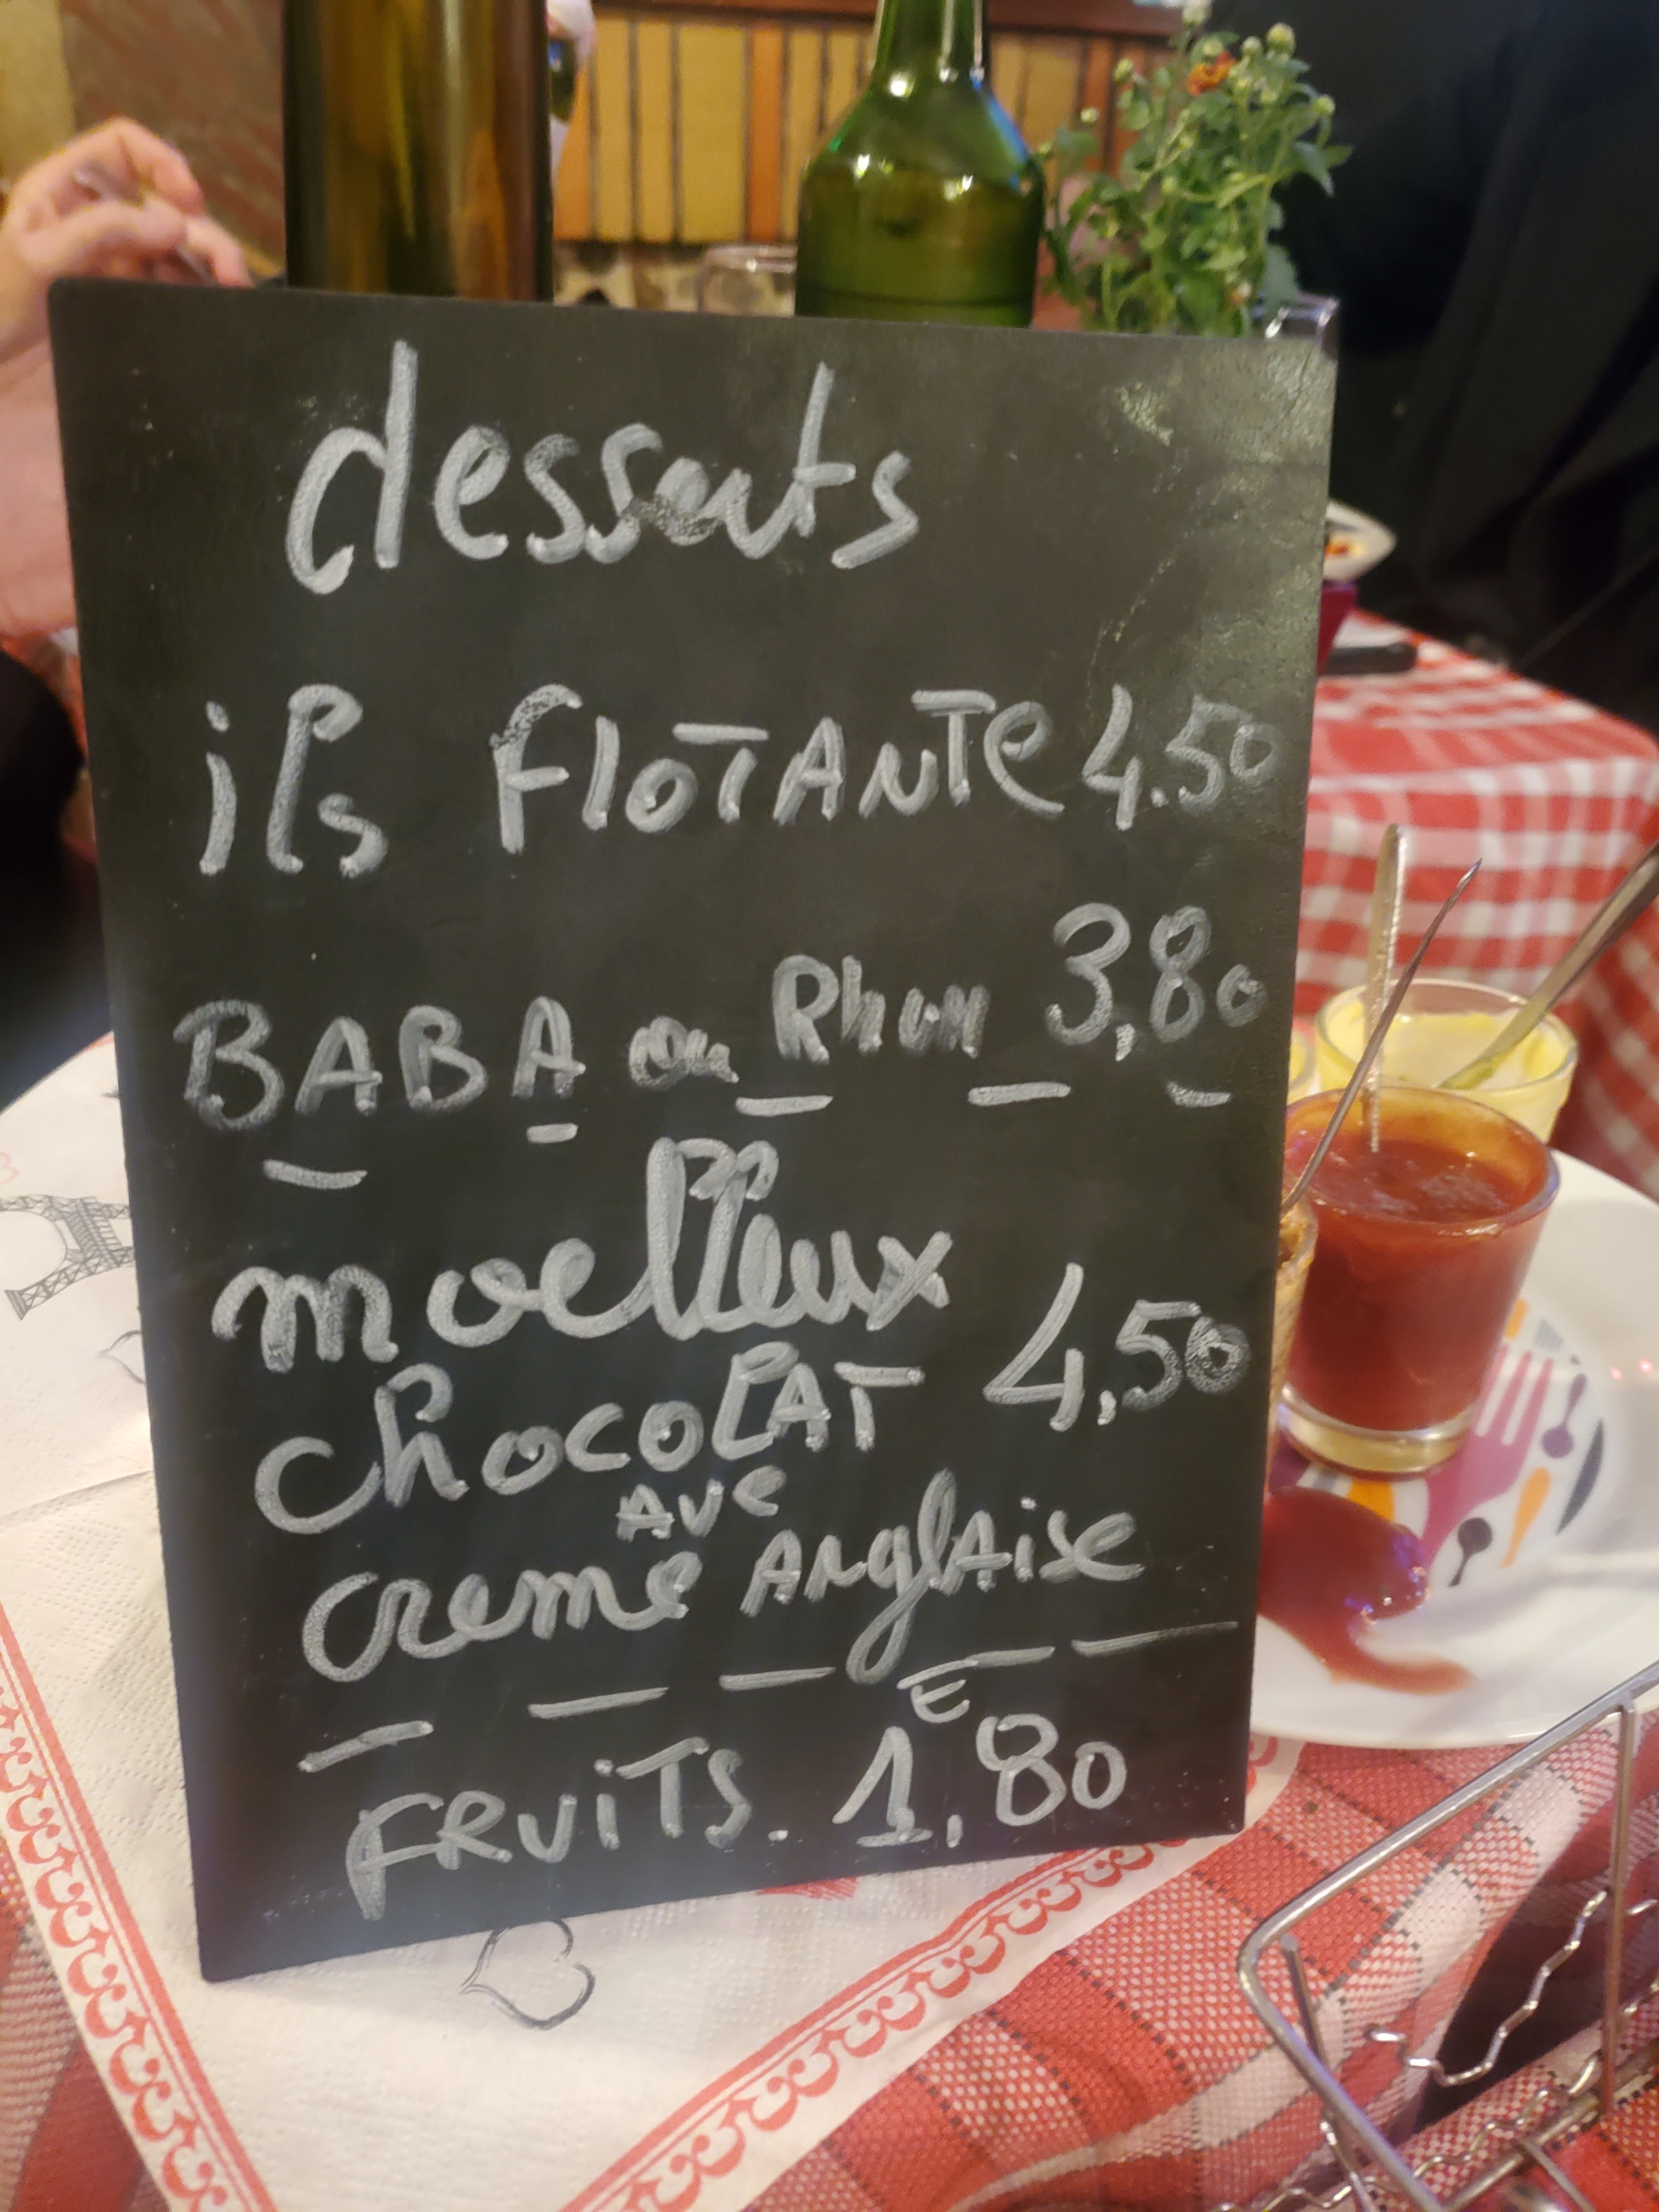 desserts
ils FlOTANTe 4.50
BABA au Rhum 3,80
moelleux
chocolAT 4,50
AVc
creme ANglAise
E
FRUiTS. 1,80